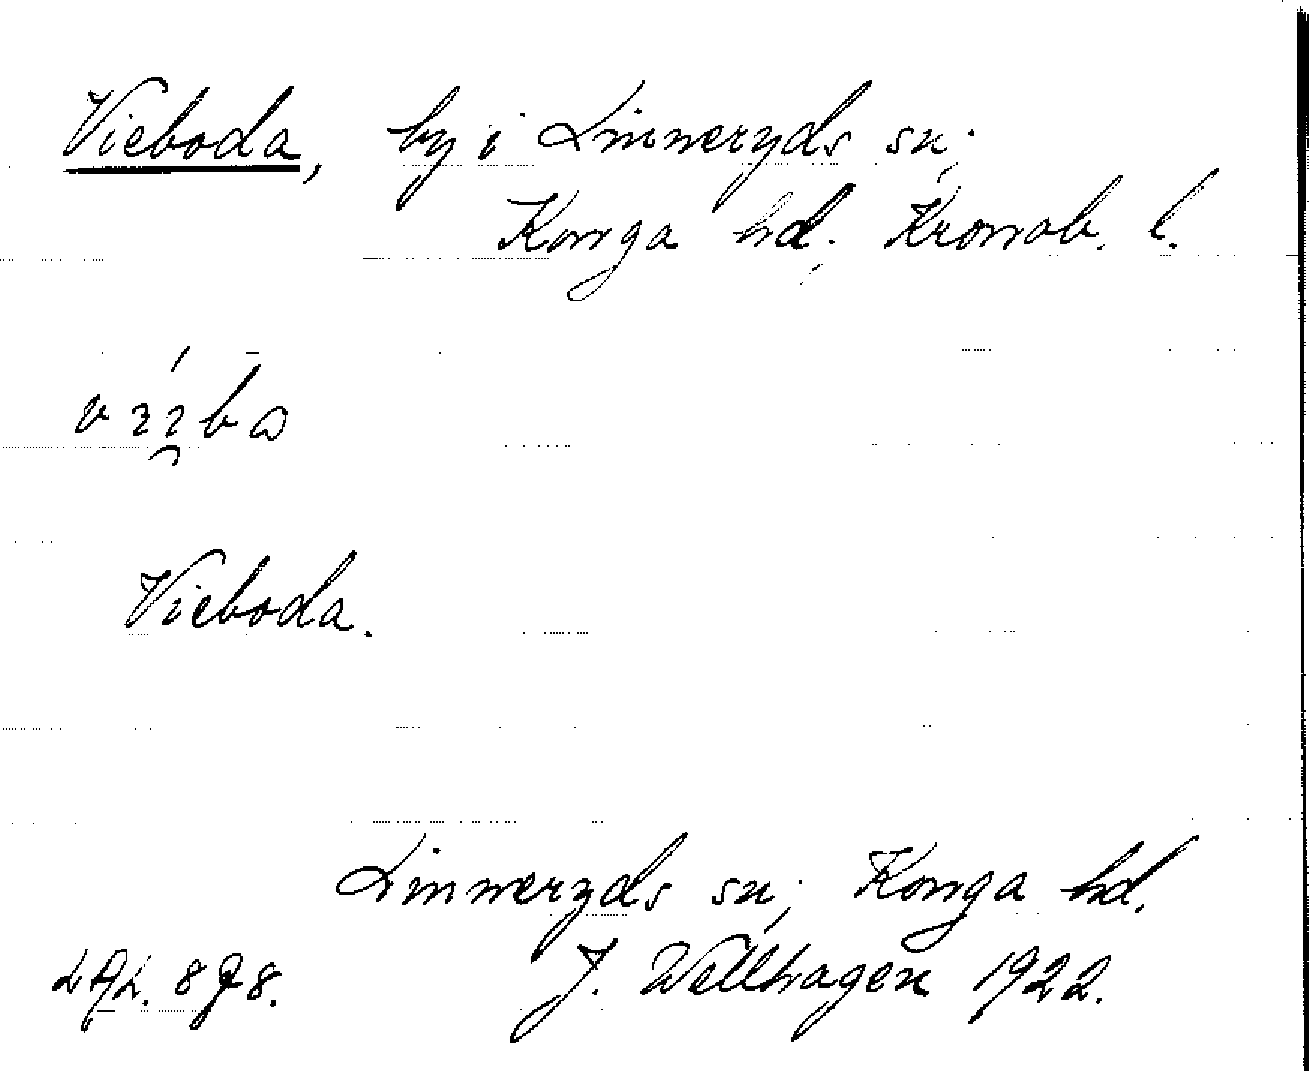 Vieboda, by i Linneryds sn;
Konga hd. Kronob. l.
Vieboda.
Linneryds sn; Konga hd.
J. Wellhagen 1922.